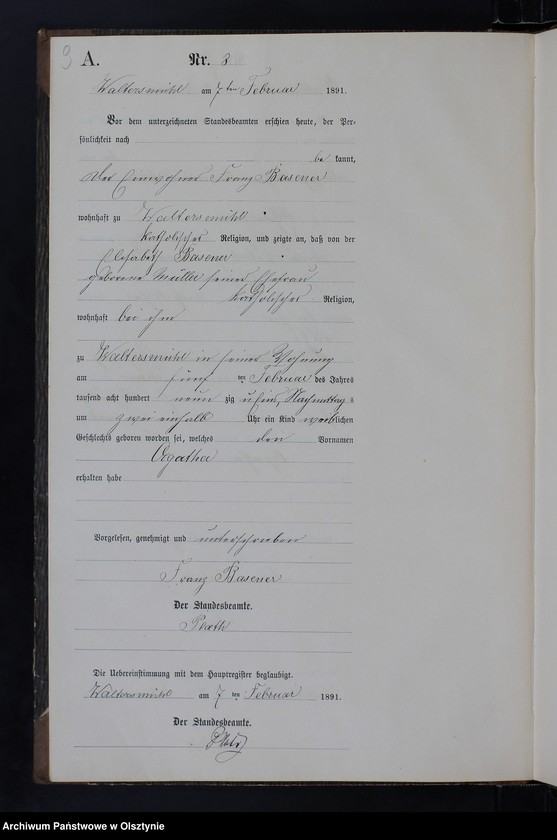 9
A. Nr. 8
Waltersmühl am 7ten Februar 1891.
Vor dem unterzeichneten Standesbeamten erschien heute, der Per-
sönlichkeit nach
be kannt,
der Einwohner Franz Basener
wohnhaft zu Waltersmühl
katholischer Religion, und zeigte an, daß von der
Elisabeth Basener
geborene Müller seiner Ehefrau
katholischer Religion,
wohnhaft bei ihm
zu Waltersmühl in seiner Wohnung
am fünf ten Februar des Jahres
tausend acht hundert neun zig und eins, Nachmittags
um zwei einhalb Uhr ein Kind weiblichen
Geschlechts geboren worden sei, welches den Vornamen
Agatha
erhalten habe
Vorgelesen, genehmigt und unterschrieben
Franz Basener
Der Standesbeamte.
Plath
Die Uebereinstimmung mit dem Hauptregister beglaubigt.
Waltersmühl am 7 ten Februar 1891.
Der Standesbeamte.
Archiwum Państwowe w Olsztynie